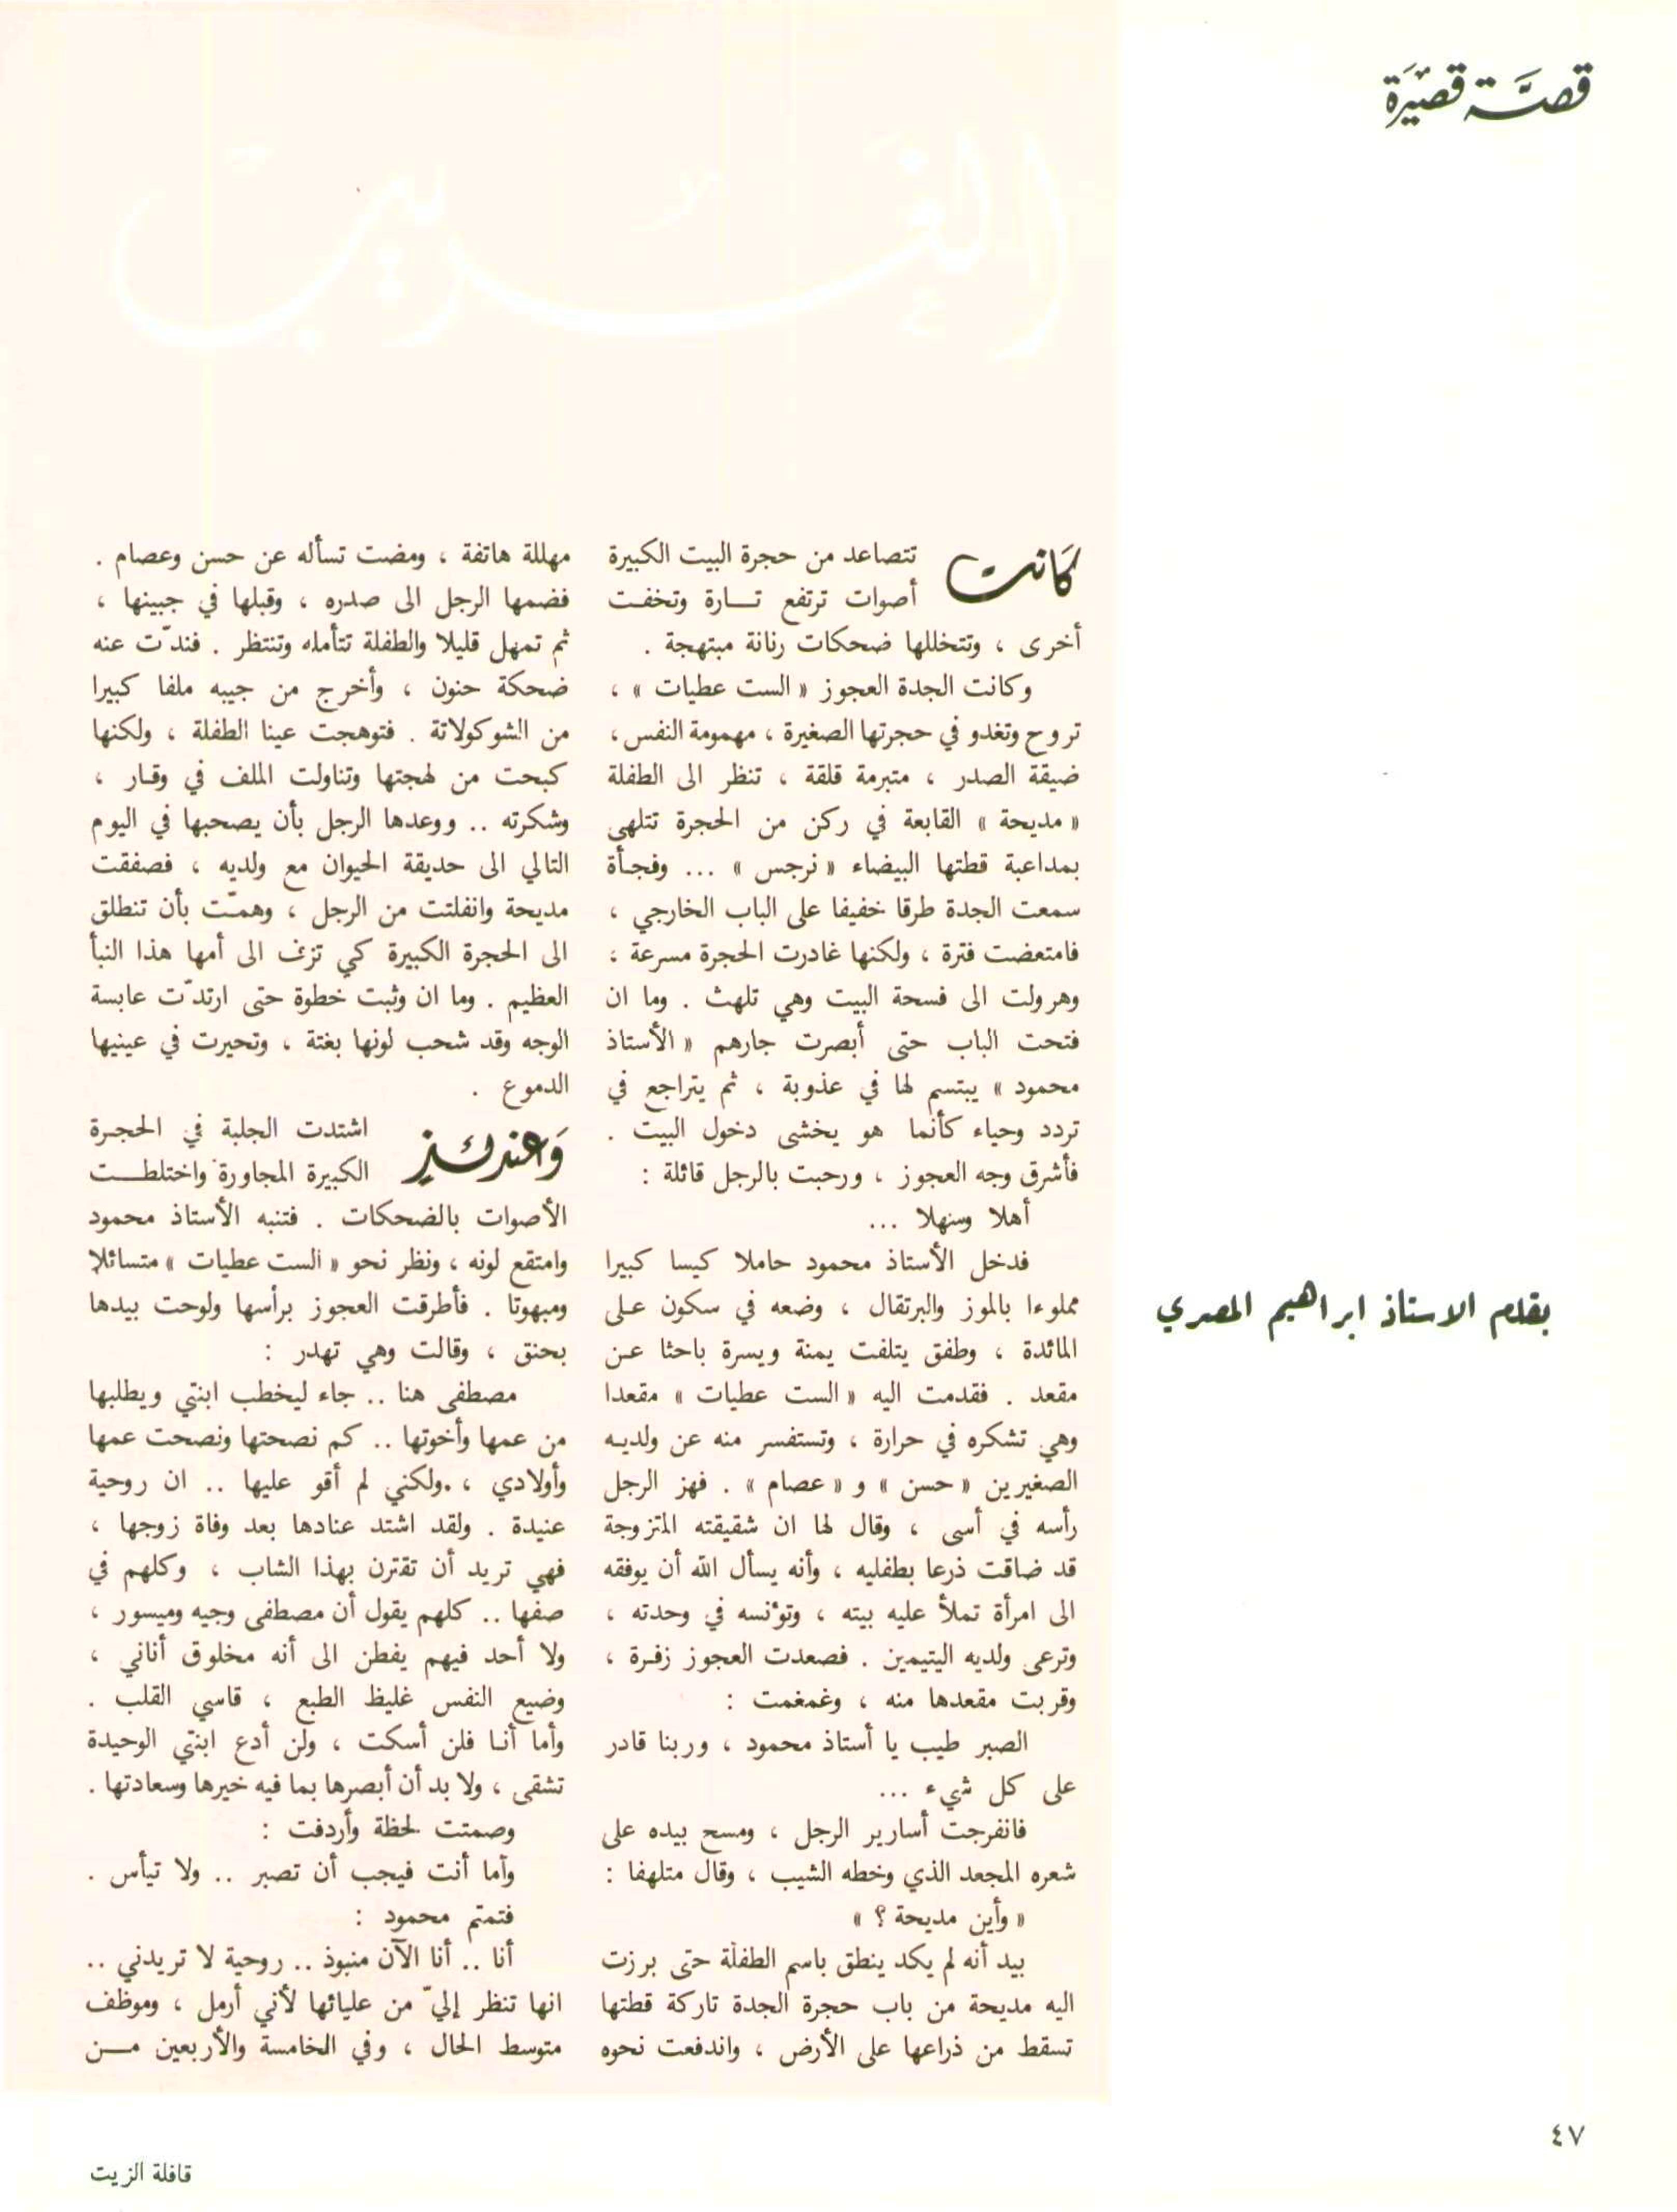 قصَّة قصَيْرَة
الغريب
بقلم الاستاذ ابراهيم المصري
كَانت تتصاعد من حجرة البيت الكبيرة
أصوات ترتفع تـــارة وتخفـت
أخرى ، وتتخللها ضحكات رنانة مبتهجة .
وكانت الجدة العجوز « الست عطيات » ،
تروح وتغدو في حجرتها الصغيرة ، مهمومة النفس ،
ضيقة الصدر ، متبرمة قلقة ، تنظر الى الطفلة
« مديحة » القابعة في ركن من الحجرة تتلهى
بمداعبة قطتها البيضاء « نرجس » ... وفجـأة
سمعت الجدة طرقا خفيفا على الباب الخارجي ،
فامتعضت فترة ، ولكنها غادرت الحجرة مسرعة ؛
وهرولت الى فسحة البيت وهي تلهث . وما ان
فتحت الباب حتى أبصرت جارهم « الأستاذ
محمود » يبتسم لها في عذوبة ، ثم يتراجع في
تردد وحياء كأنما هو يخشى دخول البيت .
فأشرق وجه العجوز ، ورحبت بالرجل قائلة :
أهلا وسهلا ...
فدخل الأستاذ محمود حاملا كيسا كبيرا
مملوءا بالموز والبرتقال ، وضعه في سكون عـلى
المائدة ، وطفق يتلفت يمنة ويسرة باحثا عـن
مقعد . فقدمت اليه « الست عطيات » مقعدا
وهي تشكره في حرارة ، وتستفسر منه عن ولديـه
الصغيرين « حسن » و « عصام » . فهز الرجل
رأسه في أسى ، وقال لها ان شقيقته المتزوجة
قد ضاقت ذرعا بطفليه ، وأنه يسأل الله أن يوفقه
الى امرأة تملأ عليه بيته ، وتؤنسه في وحدته ،
وترعى ولديه اليتيمين . فصعدت العجوز زفـرة ،
وقربت مقعدها منه ، وغمغمت :
الصبر طيب يا أستاذ محمود ، وربنا قادر
على كل شيء ...
فانفرجت أسارير الرجل ، ومسح بيده على
شعره المجعد الذي وخطه الشيب ، وقال متلهفا :
« وأين مديحة ؟ »
بيد أنه لم يكد ينطق باسم الطفلة حتى برزت
اليه مديحة من باب حجرة الجدة تاركة قطتها
تسقط من ذراعها على الأرض ، واندفعت نحوه
مهللة هاتفة ، ومضت تسأله عن حسن وعصام .
فضمها الرجل الى صدره ، وقبلها في جبينها ،
ثم تمهل قليلا والطفلة تتأمله وتنتظر . فندّت عنه
ضحكة حنون ، وأخرج من جيبه ملفا كبيرا
من الشوكولاتة . فتوهجت عينا الطفلة ، ولكنها
كبحت من لهجتها وتناولت الملف في وقـار ،
وشكرته .. ووعدها الرجل بأن يصحبها في اليوم
التالي الى حديقة الحيوان مع ولديه ، فصفقت
مديحة وانفلتت من الرجل ، وهمّت بأن تنطلق
الى الحجرة الكبيرة كي تزف الى أمها هذا النبأ
العظيم . وما ان وثبت خطوة حتى ارتدّت عابسة
الوجه وقد شحب لونها بغتة ، وتحيرت في عينيها
الدموع .
وَعندئـذٍ اشتدت الجلبة في الحجـرة
الكبيرة المجاورة واختلطـــت
الأصوات بالضحكات . فتنبه الأستاذ محمود
وامتقع لونه ، ونظر نحو « الست عطيات » متسائلا
ومبهوتا . فأطرقت العجوز برأسها ولوحت بيدها
بحنق ، وقالت وهي تهدر :
مصطفى هنا .. جاء ليخطب ابنتي ويطلبها
من عمها وأخوتها .. كم نصحتها ونصحت عمها
وأولادي ، .ولكني لم أقو عليها .. ان روحية
عنيدة . ولقد اشتد عنادها بعد وفاة زوجها ،
فهي تريد أن تقترن بهذا الشاب ، وكلهم في
صفها .. كلهم يقول أن مصطفى وجيه وميسور ،
ولا أحد فيهم يفطن الى أنه مخلوق أناني ،
وضيع النفس غليظ الطبع ، قاسي القلب .
وأما أنـا فلن أسكت ، ولن أدع ابنتي الوحيدة
تشقى ، ولا بد أن أبصرها بما فيه خيرها وسعادتها .
وصمتت لحظة وأردفت :
وأما أنت فيجب أن تصبر .. ولا تيأس .
فتمتم محمود :
أنا .. أنا الآن منبوذ .. روحية لا تريدني ..
انها تنظر إليّ من عليائها لأني أرمل ، وموظف
متوسط الحال ، وفي الخامسة والأربعين مـــن
٤٧
قافلة الزيت